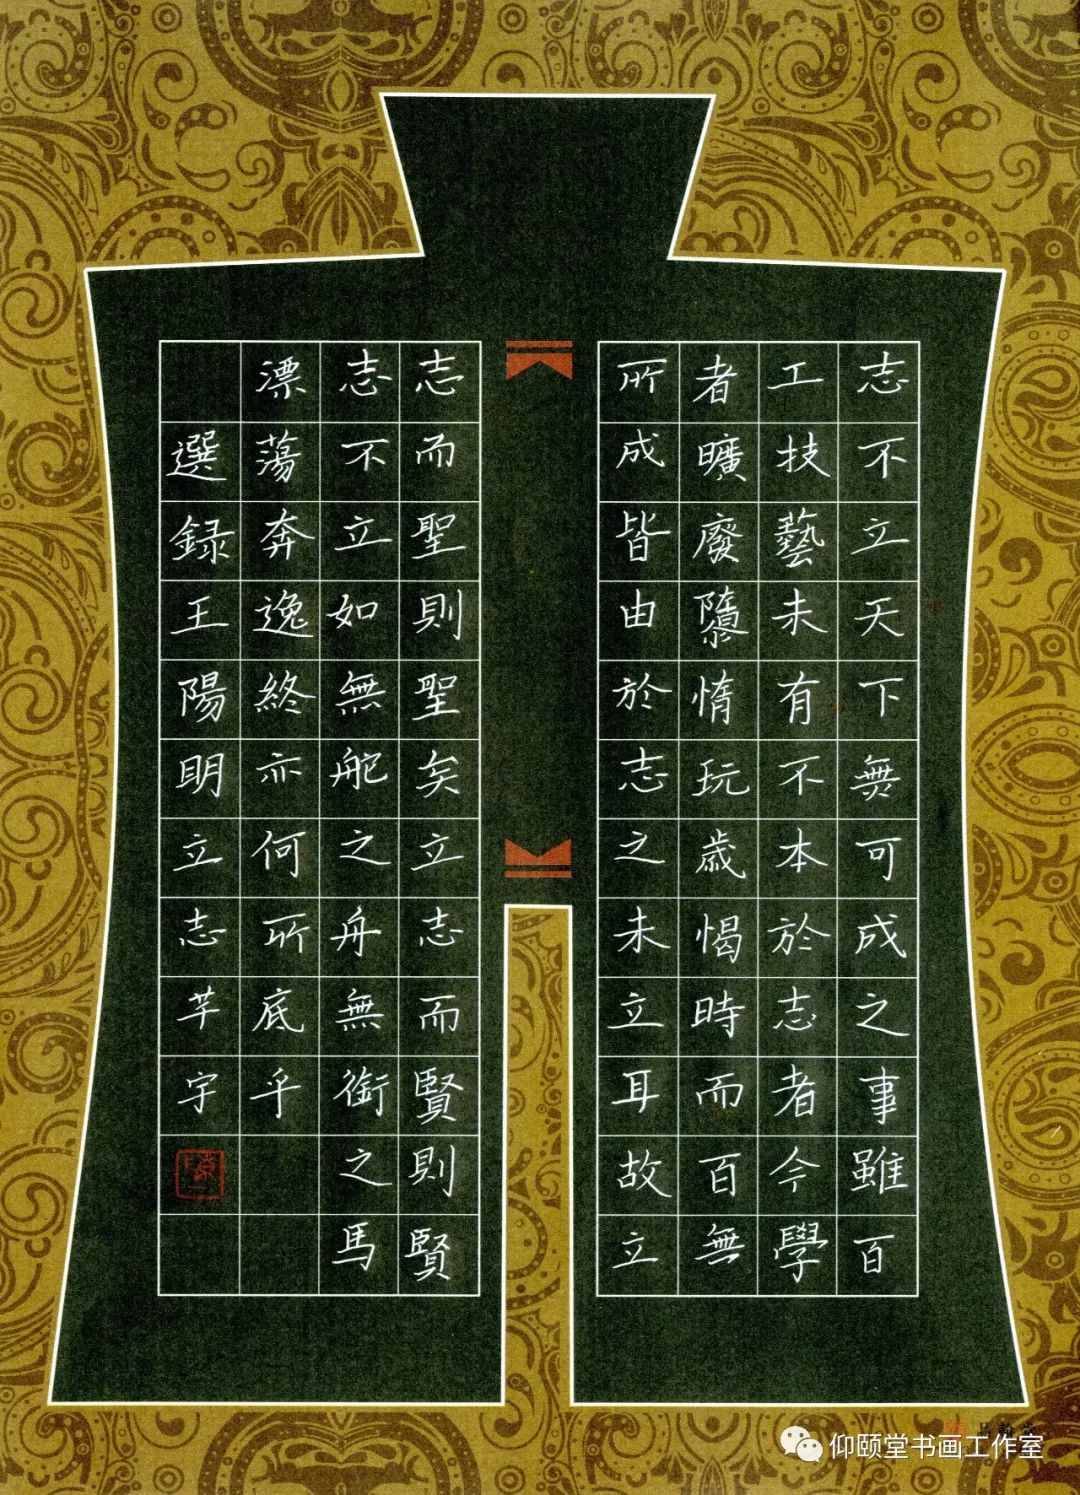 志不立天下無可成之事雖百
工技藝未有不本於志者今學
者曠廢隳惰玩歲愒時而百無
所成皆由於志之未立耳故立
志而聖則聖矣立志而賢則賢
志不立如無舵之舟無銜之馬
漂蕩奔逸終亦何所底乎
選録王陽明立志芊宇
仰颐堂书画工作室